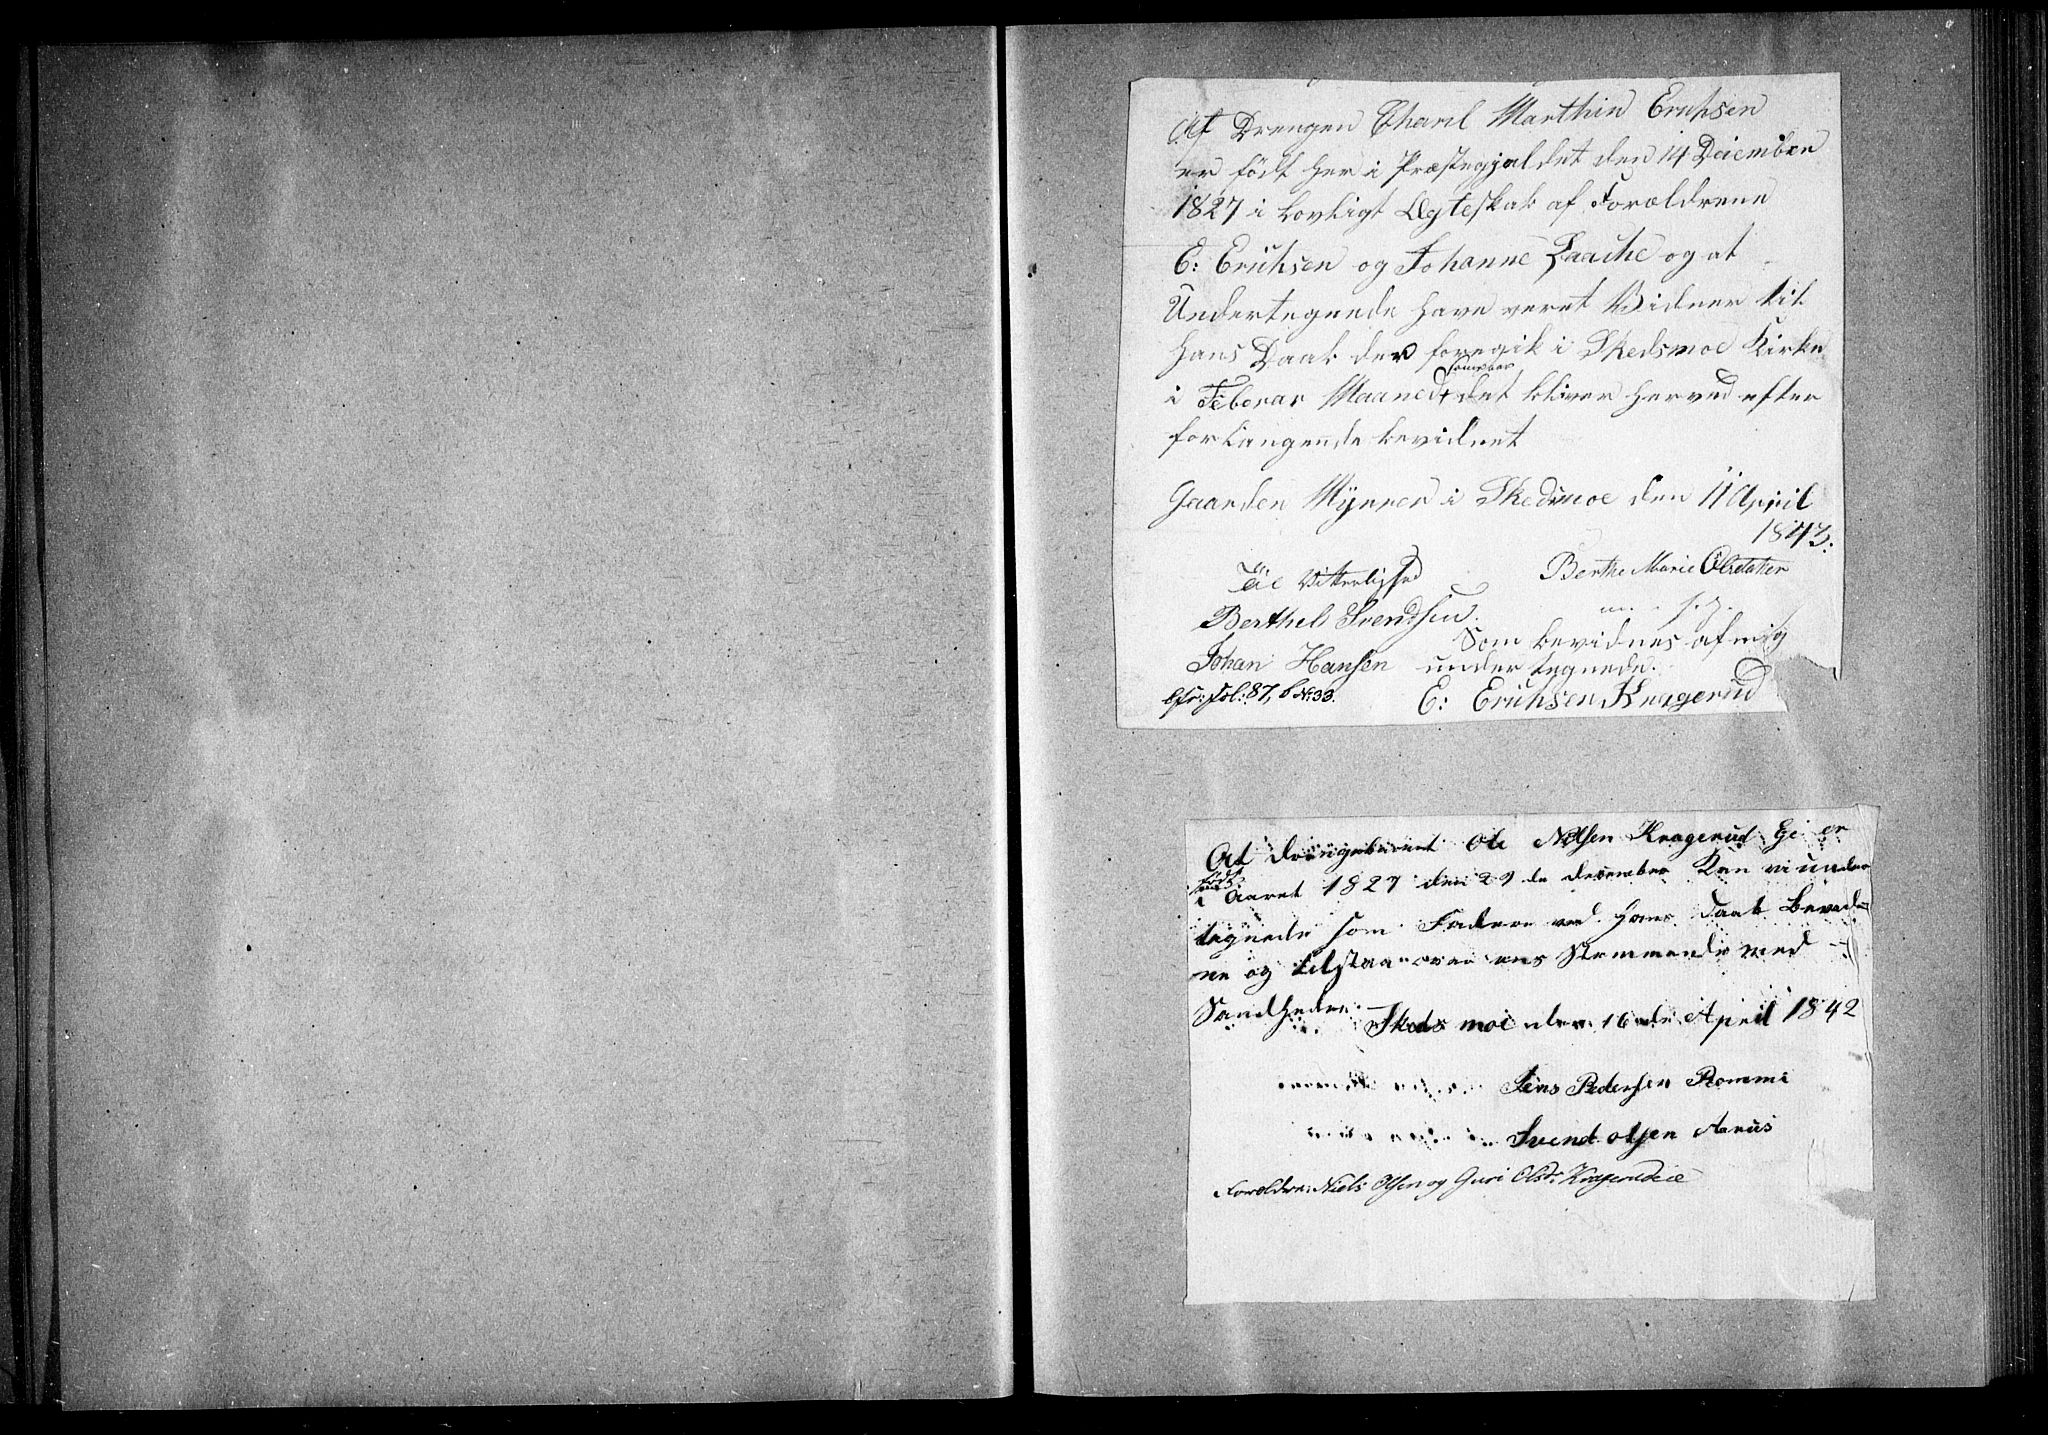 At Drengen Charl Marthin Erichsen
er födt her i Præstegjaldet den 14 Deiember
1827 i Lovligt Ægteskab af Forældrene
E: Erichsen og Johanne Laache og at
Undertegnede have veret Vidner til
hans Daab der foregik i Skedsmoe Kirke
i Feberar Maaned det bliver herved efter
forlangende bevidnet
Gaarden Mÿrrer i Skedsmoe den 11 April
1843.
Til Vitterlighed
Berthe Marie Olsdatter
Berthel Svendsen
Som bevidnes af mig
Johan Hansen
undertegnede.
cfr: fol: 87, b No 33.
E: Erichsen Kragerud
At drengebarnet Ole Nilsen Kragerud Ei er
födt
i Aaret 1827 den 29 de december Kan vi under
tegnede som Faddere ved hans daab bevid=
ne og tilstaa over ens Stemmende med
Sandheden. Skedsmoe den 16 de April 1842
Jens Pedersen Rommi
Svend olsen Aarus
Forældre: Niels Olsen og Guri Olsdr Kragerudeie